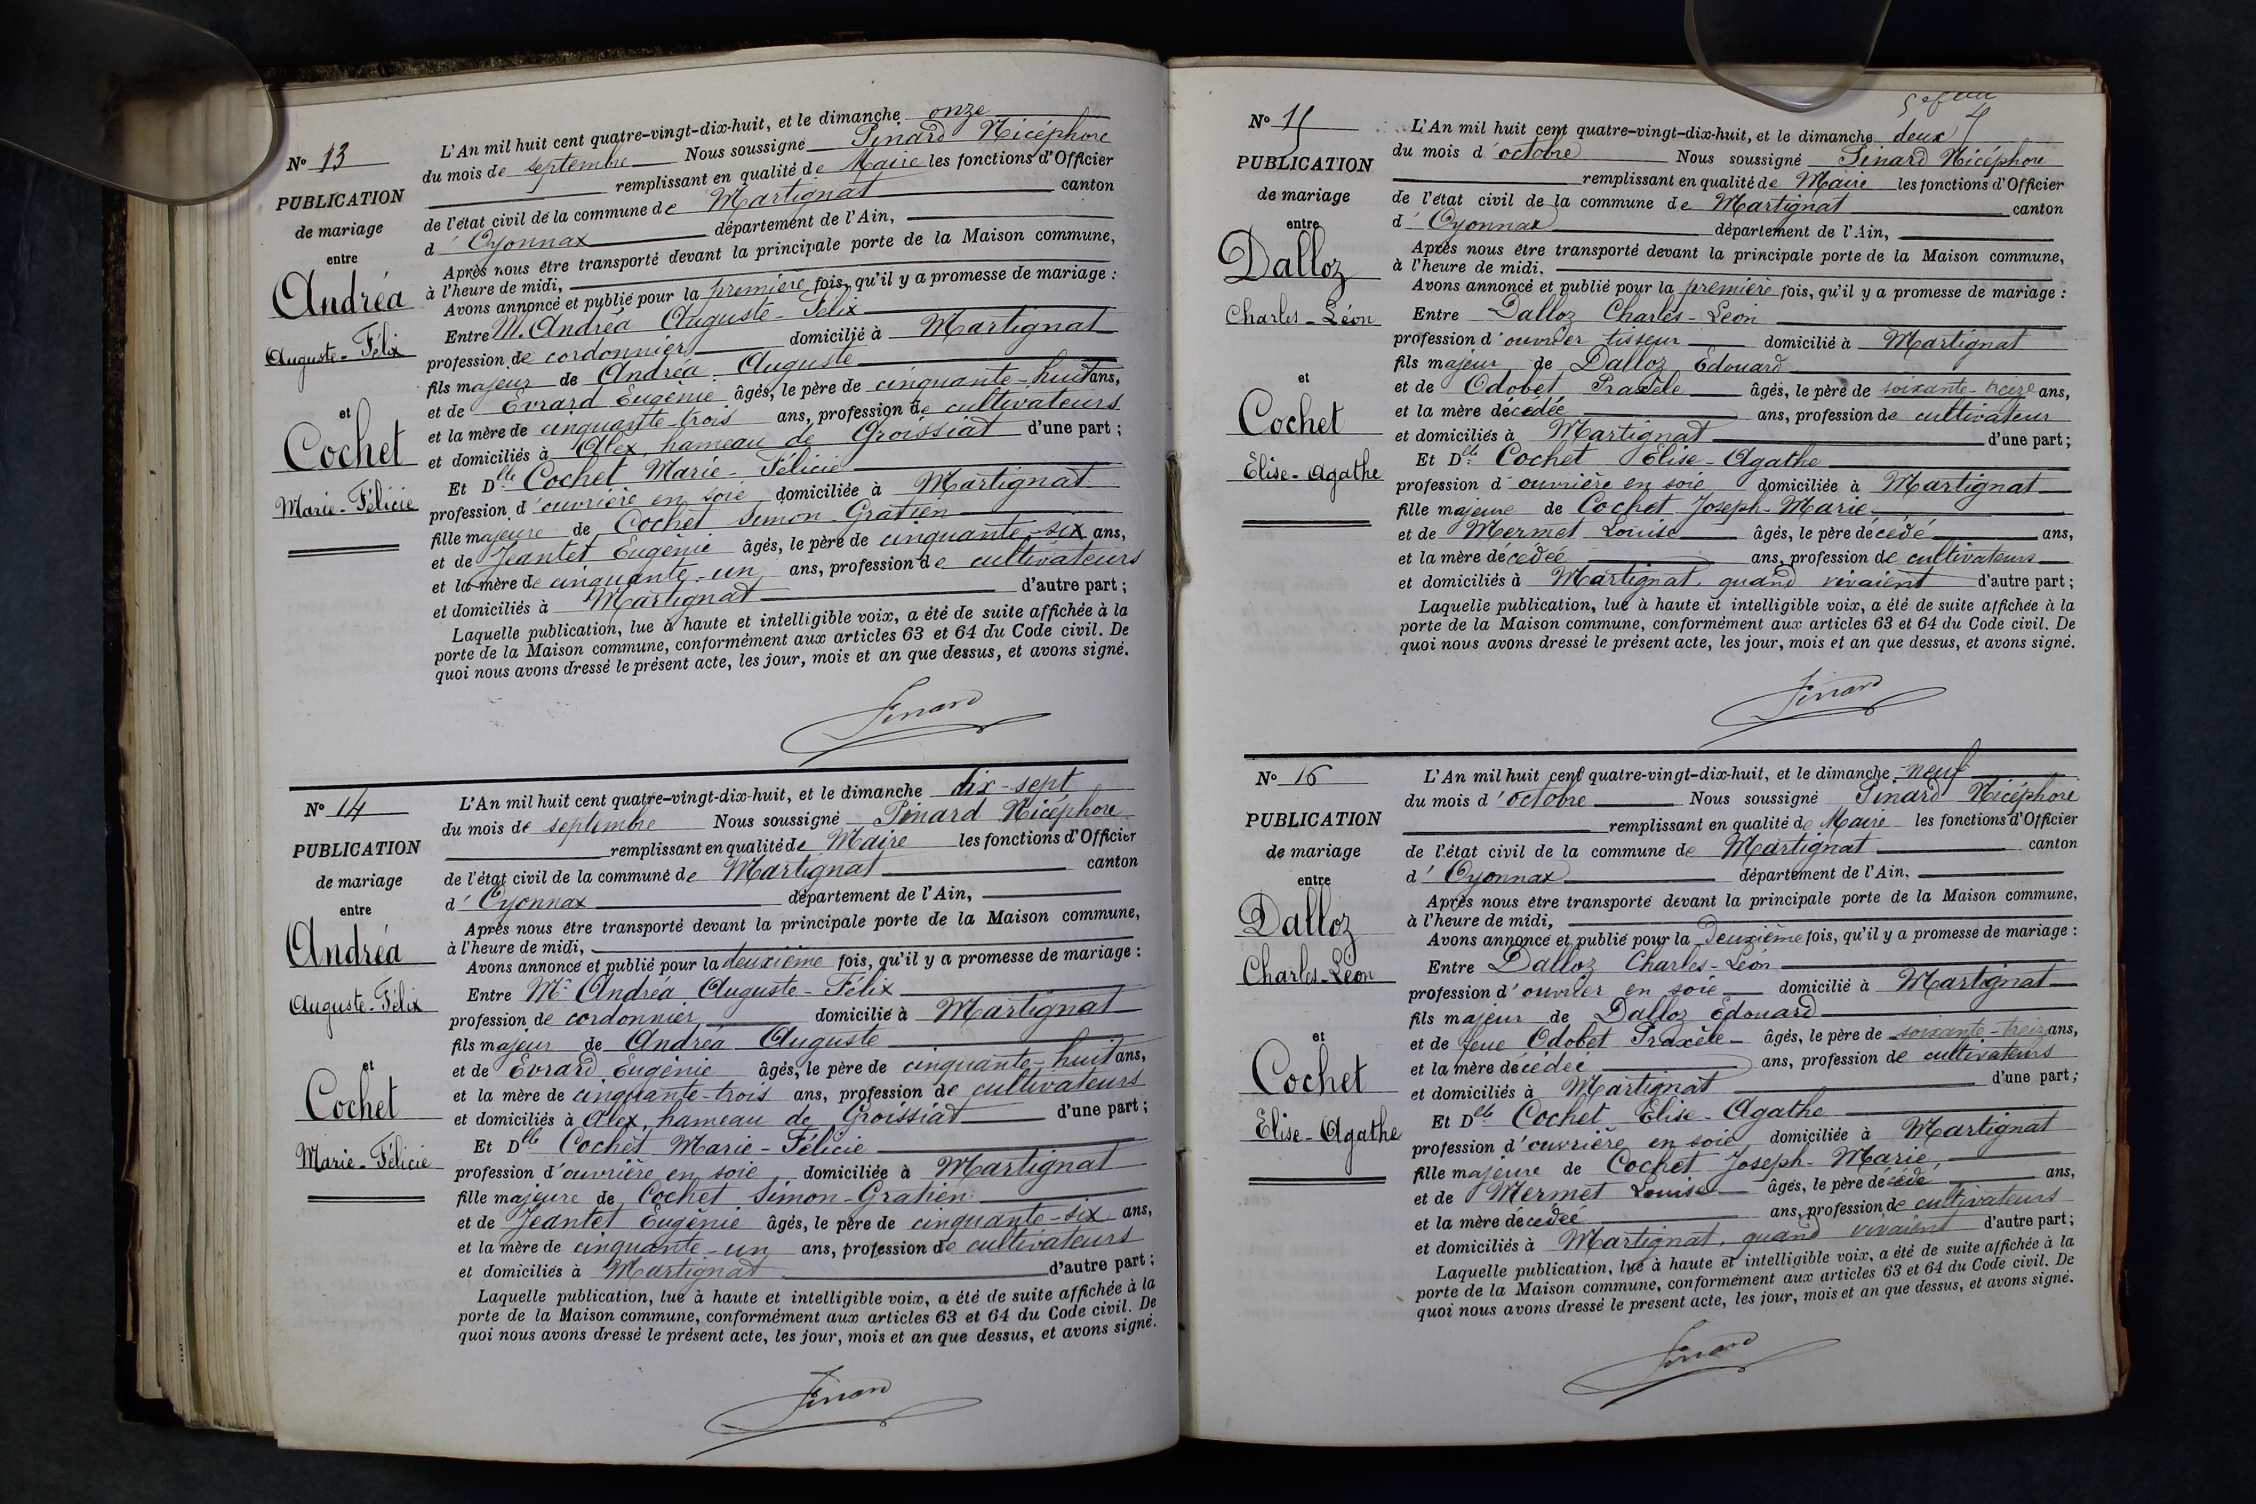 N° 13
PUBLICATION
de mariage
entre
Andréa
Auguste-Félix
et
Cochet
Marie-Félicie
L'An mil huit cent quatre-vingt-dix-huit, et le dimanche onze
du mois de septembre Nous soussigné Pinard Nicéphore
remplissant en qualité de Maire les fonctions d'Officier
de l'état civil de la commune de Martignat canton
d'Oyonnax département de l'Ain,
Après nous être transporté devant la principale porte de la Maison commune,
à l'heure de midi,
Avons annoncé et publié pour la première fois, qu'il y a promesse de mariage :
Entre M. Andréa Auguste-Félix
profession de cordonnier domicilié à Martignat
fils majeur de Andréa Auguste
et de Evrard Eugénie âgés, le père de cinquante-huit ans,
et la mère de cinquante-trois ans, profession de cultivateurs
et domiciliés à Alex, hameau de Groissiat d'une part ;
Et Dlle Cochet Marie-Félicie
profession d'ouvrière en soie domiciliée à Martignat
fille majeure de Cochet Simon-Gratien
et de Jeantet Eugénie âgés, le père de cinquante-six ans,
et la mère de cinquante-un ans, profession de cultivateurs
et domiciliés à Martignat d'autre part ;
Laquelle publication, lue à haute et intelligible voix, a été de suite affichée à la
porte de la Maison commune, conformément aux articles 63 et 64 du Code civil. De
quoi nous avons dressé le présent acte, les jour, mois et an que dessus, et avons signé.
Pinard
N° 14
PUBLICATION
de mariage
entre
Andréa
Auguste-Félix
et
Cochet
Marie-Félicie
L'An mil huit cent quatre-vingt-dix-huit, et le dimanche dix-sept
du mois de septembre Nous soussigné Pinard Nicéphore
remplissant en qualité de Maire les fonctions d'Officier
de l'état civil de la commune de Martignat canton
d'Oyonnax département de l'Ain,
Après nous être transporté devant la principale porte de la Maison commune,
à l'heure de midi,
Avons annoncé et publié pour la deuxième fois, qu'il y a promesse de mariage :
Entre Mr Andréa Auguste-Félix
profession de cordonnier domicilié à Martignat
fils majeur de Andréa Auguste
et de Evrard Eugénie âgés, le père de cinquante-huit ans,
et la mère de cinquante-trois ans, profession de cultivateurs
et domiciliés à Alex, hameau de Groissiat d'une part ;
Et Dlle Cochet Marie-Félicie
profession d'ouvrière en soie domiciliée à Martignat
fille majeure de Cochet Simon-Gratien
et de Jeantet Eugénie âgés, le père de cinquante-six ans,
et la mère de cinquante-un ans, profession de cultivateurs
et domiciliés à Martignat d'autre part ;
Laquelle publication, lue à haute et intelligible voix, a été de suite affichée à la
porte de la Maison commune, conformément aux articles 63 et 64 du Code civil. De
quoi nous avons dressé le présent acte, les jour, mois et an que dessus, et avons signé.
Pinard
N° 15
PUBLICATION
de mariage
entre
Dalloz
Charles-Léon
et
Cochet
Elise-Agathe
L'An mil huit cent quatre-vingt-dix-huit, et le dimanche deux
du mois d'octobre Nous soussigné Pinard Nicéphore
remplissant en qualité de Maire les fonctions d'Officier
de l'état civil de la commune de Martignat canton
d'Oyonnax département de l'Ain,
Après nous être transporté devant la principale porte de la Maison commune,
à l'heure de midi,
Avons annoncé et publié pour la première fois, qu'il y a promesse de mariage :
Entre Dalloz Charles-Léon
profession d'ouvrier tisseur domicilié à Martignat
fils majeur de Dalloz Edouard
et de Odobet Praxèle âgés, le père de soixante-treize ans,
et la mère décédée ans, profession de cultivateur
et domiciliés à Martignat d'une part ;
Et Dlle Cochet Elise-Agathe
profession d'ouvrière en soie domiciliée à Martignat
fille majeure de Cochet Joseph-Marie
et de Mermet Louise âgés, le père décédé ans,
et la mère décedeé ans, profession de cultivateurs
et domiciliés à Martignat, quand vivaient d'autre part ;
Laquelle publication, lue à haute et intelligible voix, a été de suite affichée à la
porte de la Maison commune, conformément aux articles 63 et 64 du Code civil. De
quoi nous avons dressé le présent acte, les jour, mois et an que dessus, et avons signé.
Pinard
N° 16
PUBLICATION
de mariage
entre
Dalloz
Charles-Léon
et
Cochet
Elise-Agathe
L'An mil huit cent quatre-vingt-dix-huit, et le dimanche neuf
du mois d'octobre Nous soussigné Pinard Nicéphore
remplissant en qualité de Maire les fonctions d'Officier
de l'état civil de la commune de Martignat canton
d'Oyonnax département de l'Ain,
Après nous être transporté devant la principale porte de la Maison commune,
à l'heure de midi,
Avons annoncé et publié pour la Deuxième fois, qu'il y a promesse de mariage :
Entre Dalloz Charles-Léon
profession d'ouvrier en soie domicilié à Martignat
fils majeur de Dalloz Edouard
et de feue Odobet Praxèle âgés, le père de soixante-treize ans,
et la mère décédée ans, profession de cultivateurs
et domiciliés à Martignat d'une part ;
Et Dlle Cochet Elise-Agathe
profession d'ouvrière en soie domiciliée à Martignat
fille majeure de Cochet Joseph-Marie
et de Mermet Louise âgés, le père décédé ans,
et la mère décedeé ans, profession de cultivateurs
et domiciliés à Martignat, quand vivaient d'autre part ;
Laquelle publication, lue à haute et intelligible voix, a été de suite affichée à la
porte de la Maison commune, conformément aux articles 63 et 64 du Code civil. De
quoi nous avons dressé le présent acte, les jour, mois et an que dessus, et avons signé.
Pinard